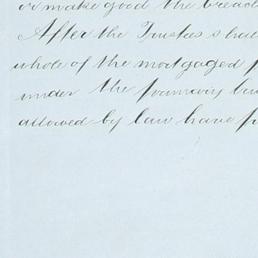 or make good the breach
After the Trustees shall
whole of the mortgaged
under the
allowed by law have